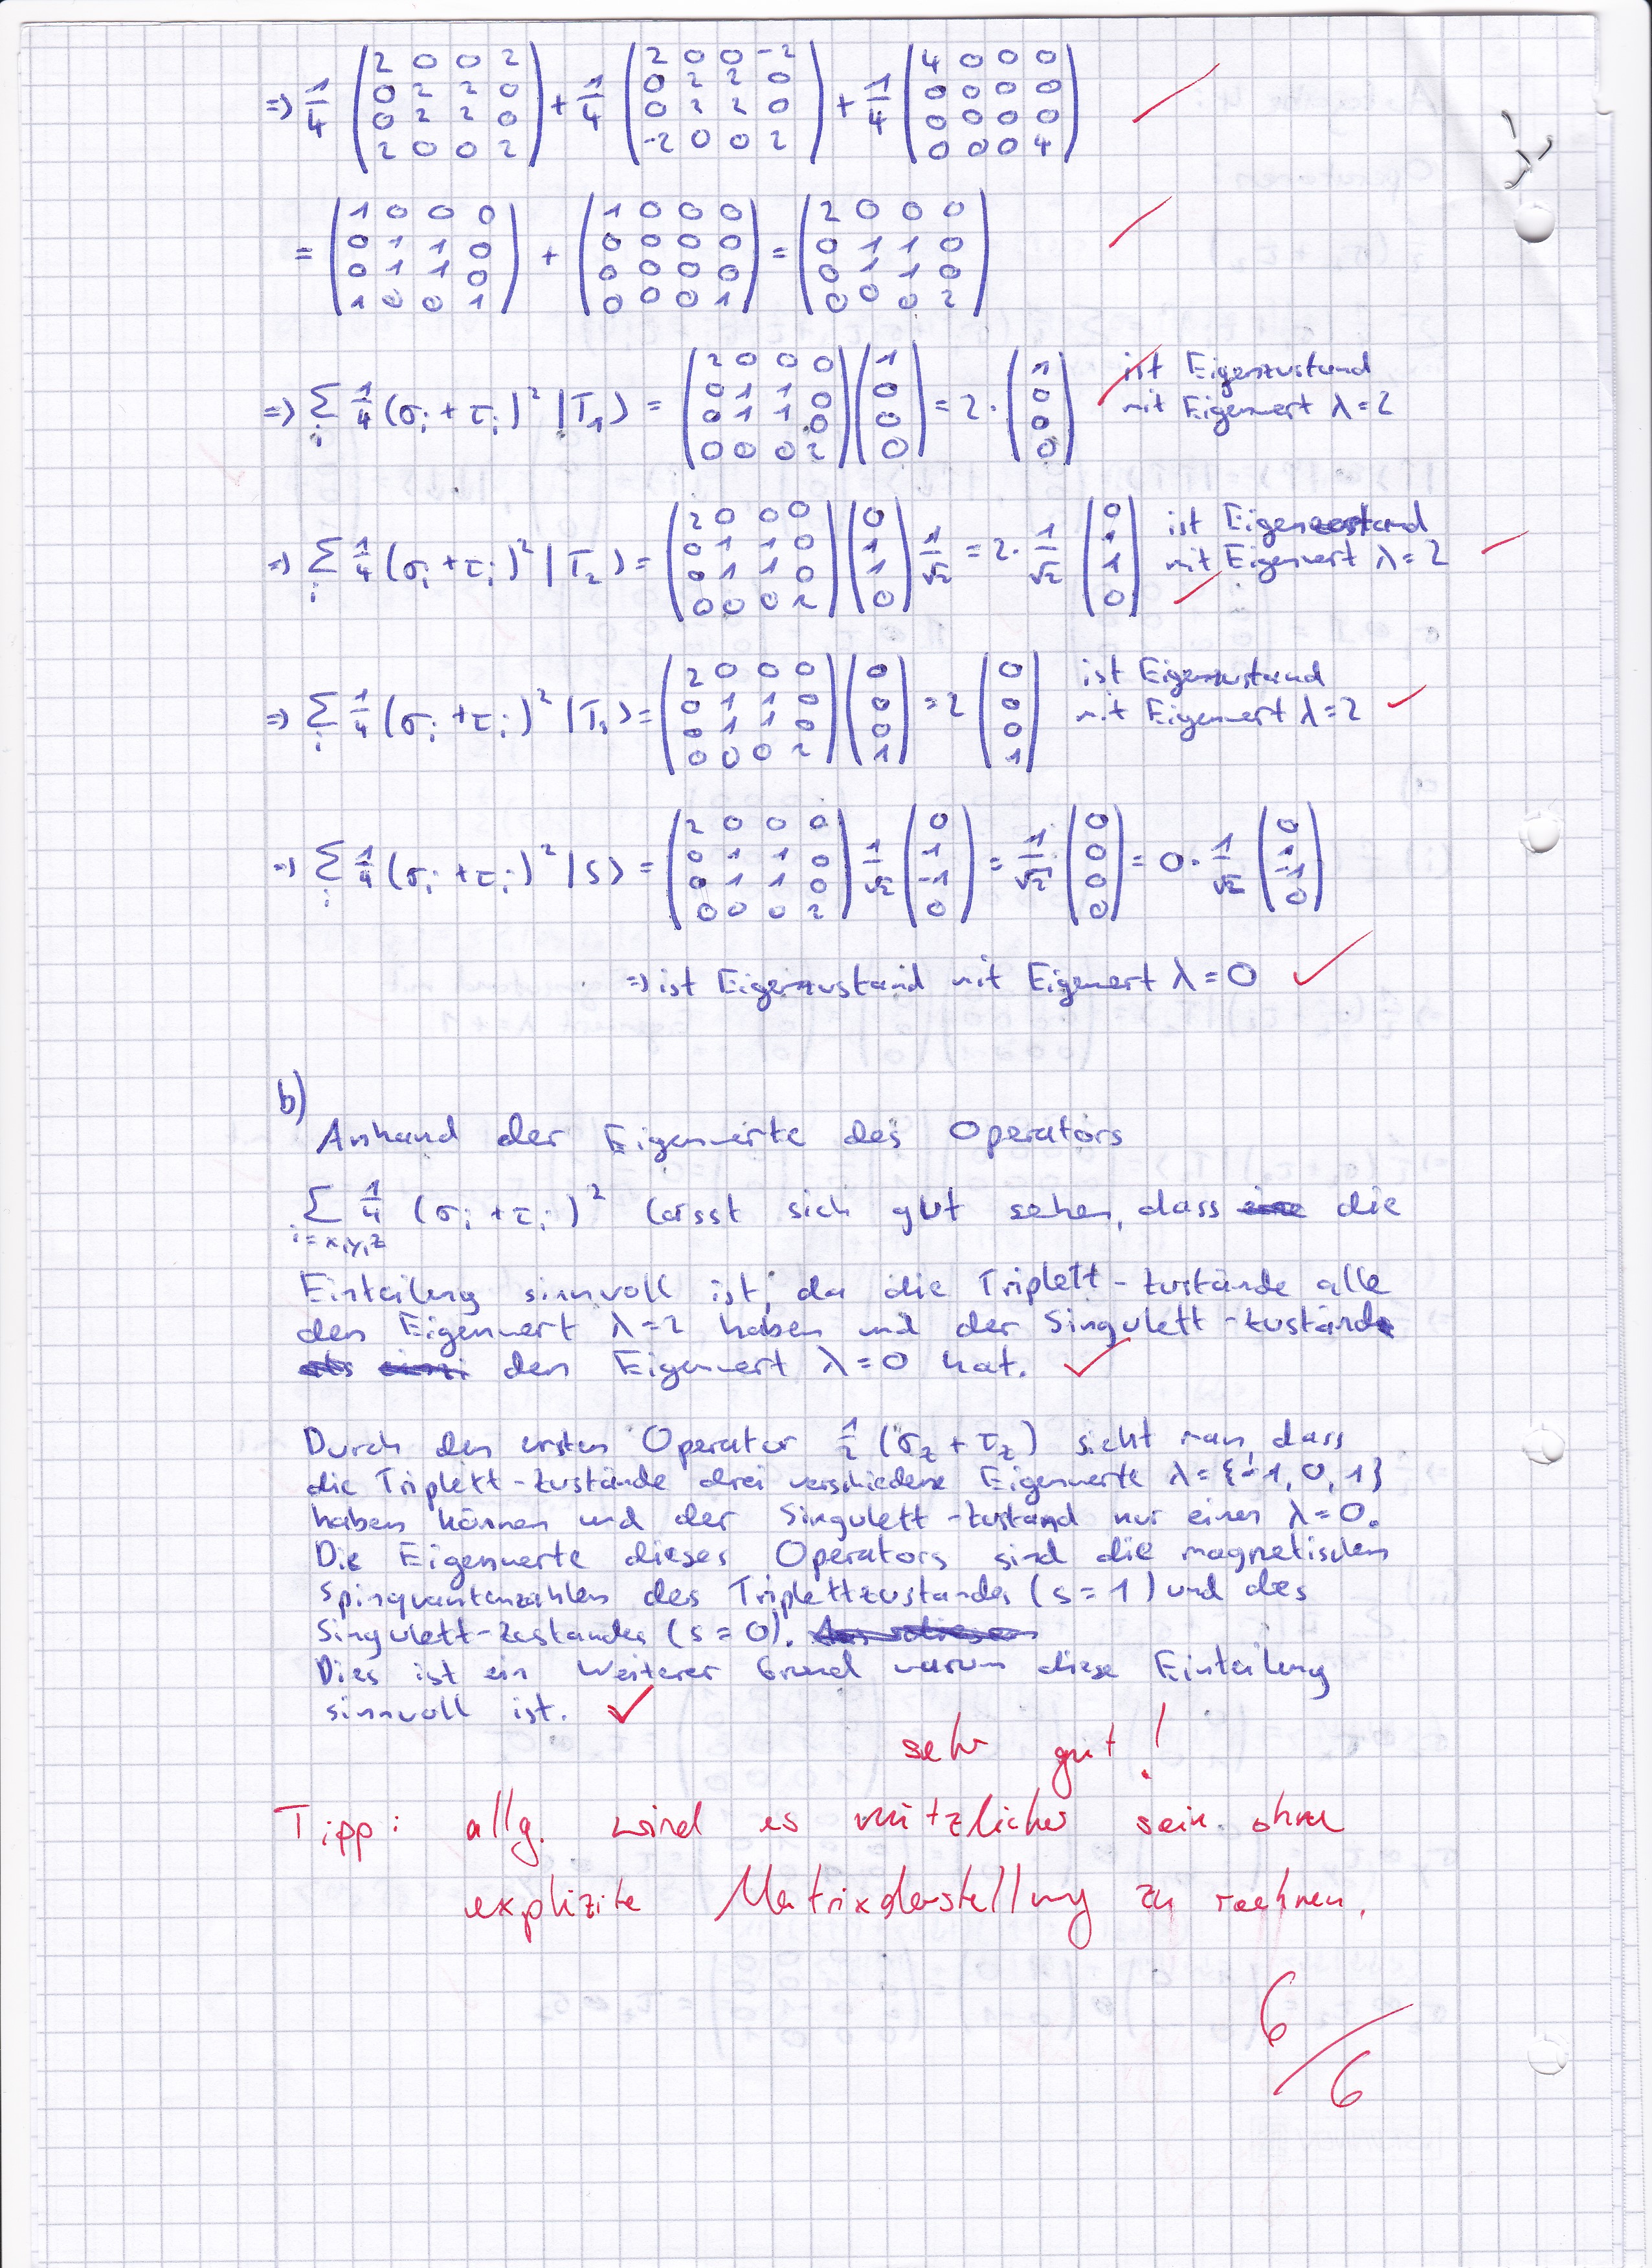 => 1/4 (2 0 0 2; 0 2 2 0; 0 2 2 0; 2 0 0 2) + 1/4 (2 0 0 -2; 0 2 2 0; 0 2 2 0; -2 0 0 2) + 1/4 (4 0 0 0; 0 0 0 0; 0 0 0 0; 0 0 0 4)
= (1 0 0 0; 0 1 1 0; 0 1 1 0; 1 0 0 1) + (1 0 0 0; 0 0 0 0; 0 0 0 0; 0 0 0 1) = (2 0 0 0; 0 1 1 0; 0 1 1 0; 0 0 0 2)
=> Σ_i 1/4 (σ_i + τ_i)² |T_1⟩ = (2 0 0 0; 0 1 1 0; 0 1 1 0; 0 0 0 2) (1; 0; 0; 0) = 2 · (1; 0; 0; 0) ist Eigenzustand
mit Eigenwert λ=2
=> Σ_i 1/4 (σ_i + τ_i)² |T_2⟩ = (2 0 0 0; 0 1 1 0; 0 1 1 0; 0 0 0 2) (0; 1; 1; 0) 1/√2 = 2 · 1/√2 (0; 1; 1; 0) ist Eigenzustand
mit Eigenwert λ=2
=> Σ_i 1/4 (σ_i + τ_i)² |T_3⟩ = (2 0 0 0; 0 1 1 0; 0 1 1 0; 0 0 0 2) (0; 0; 0; 1) = 2 (0; 0; 0; 1) ist Eigenzustand
mit Eigenwert λ=2
=> Σ_i 1/4 (σ_i + τ_i)² |S⟩ = (2 0 0 0; 0 1 1 0; 0 1 1 0; 0 0 0 2) 1/√2 (0; 1; -1; 0) = 1/√2 (0; 0; 0; 0) = 0 · 1/√2 (0; 1; -1; 0)
=> ist Eigenzustand mit Eigenwert λ=0
b)
Anhand der Eigenwerte des Operators
Σ_{i=x,y,z} 1/4 (σ_i + τ_i)² lässt sich gut sehen, dass die
Einteilung sinnvoll ist, da die Triplett-Zustände alle
den Eigenwert λ=2 haben und der Singulett-Zustand
den Eigenwert λ=0 hat.
Durch den ersten Operator 1/2 (σ_z + τ_z) sieht man, dass
die Triplett-Zustände drei verschiedene Eigenwerte λ={-1, 0, 1}
haben können und der Singulett-Zustand nur einen λ=0.
Die Eigenwerte dieses Operators sind die magnetischen
Spinquantenzahlen des Triplettzustandes (s=1) und des
Singulett-Zustandes (s=0).
Dies ist ein weiterer Grund warum diese Einteilung
sinnvoll ist.
sehr gut!
Tipp: allg. wird es nützlicher sein ohne
explizite Matrixdarstellung zu rechnen.
6/6